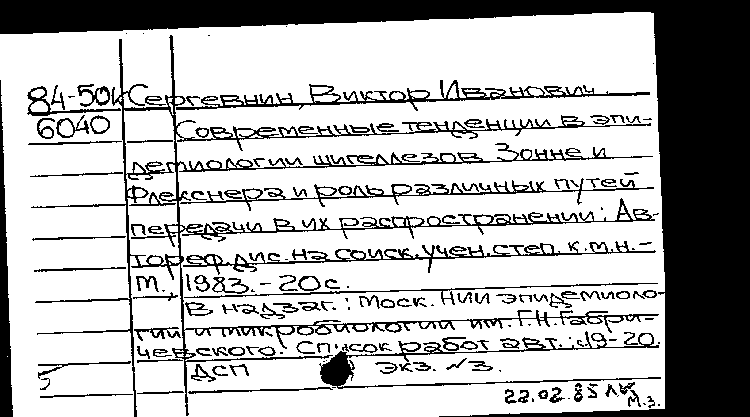 84-50к Сергевнин, Виктор Иванович
6040 Современные тенденции в эпи-
демиологии шигеллезов Зонне и
Флекснера и роль различных путей
передачи в их распространении: Ав-
тореф.дис.на соиск.учен.степ.к.м.н.-
М., 1983.-20с.
В надзаг.: Моск. НИИ эпидемиоло-
гии и микробиологии им. Г.Н.Габри-
чевского. Список работ авт.:с19-20.
5 ДСП экз. №3.
22.02.85
М.З.